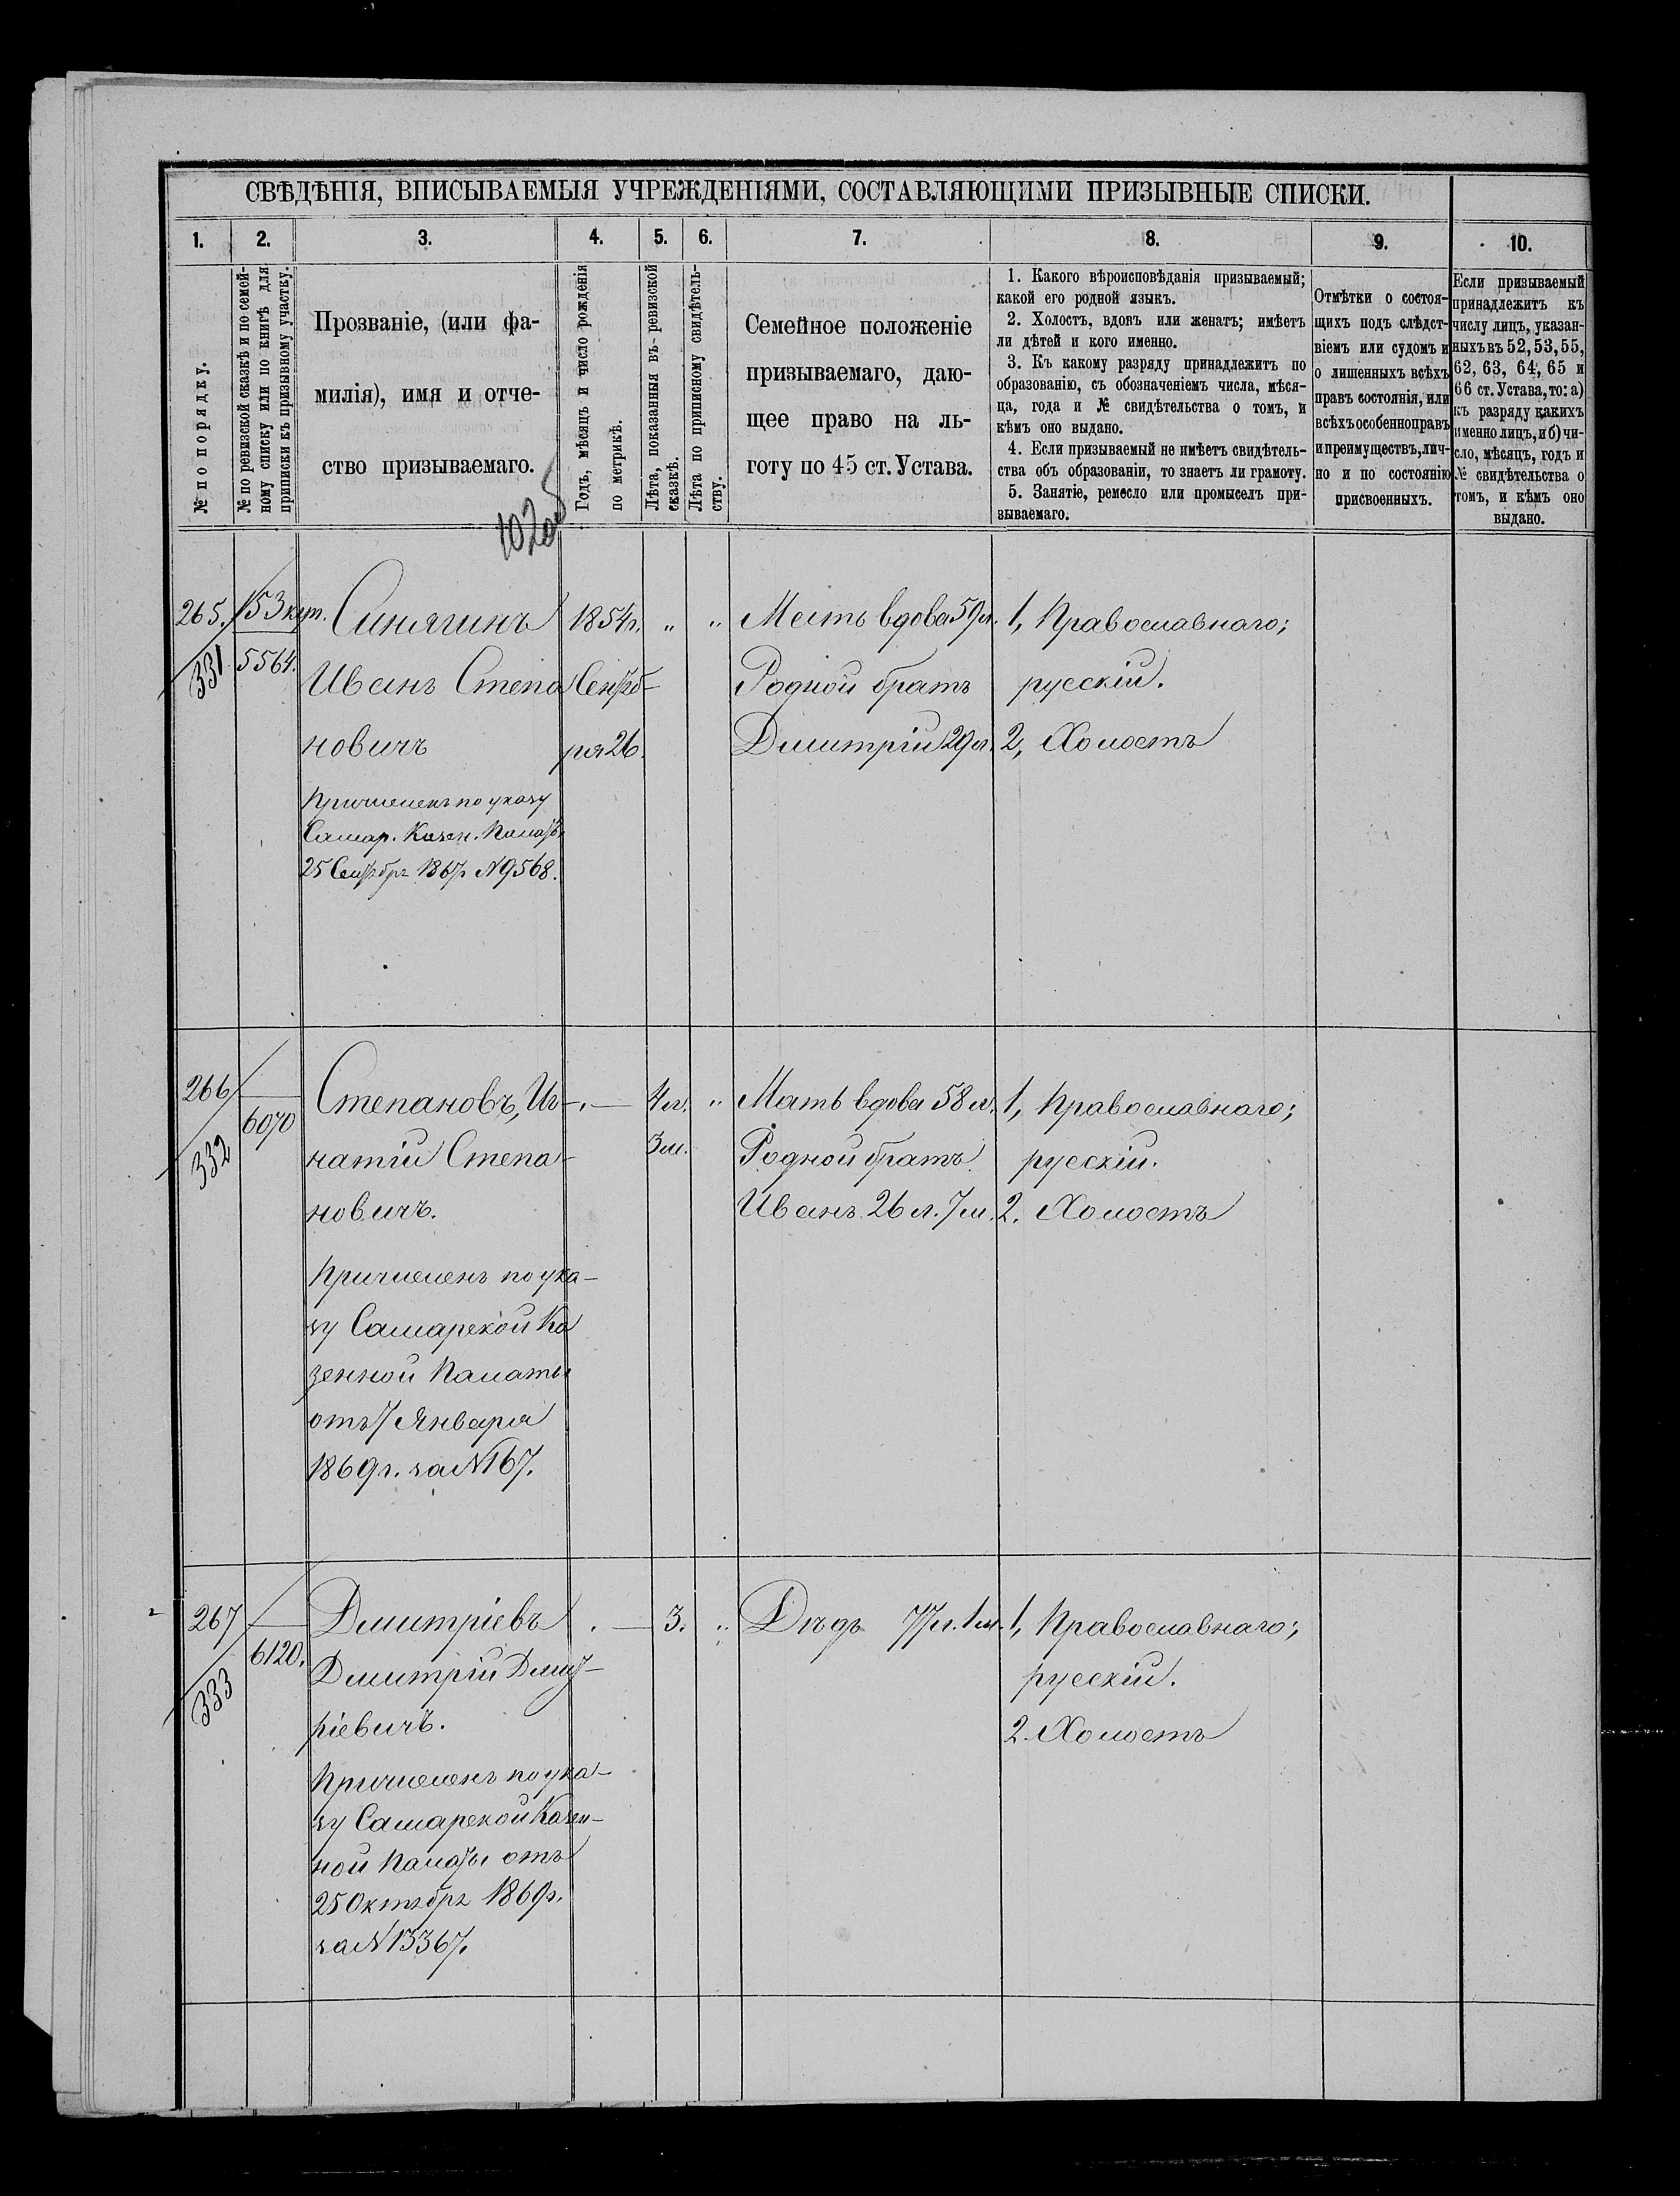 СВѢДѢНІЯ, ВПИСЫВАЕМЫЯ УЧРЕЖДЕНІЯМИ, СОСТАВЛЯЮЩИМИ ПРИЗЫВНЫЕ СПИСКИ.
1.
2.
3.
4.
5.
6.
7.
8.
9.
10.
№ по порядку.
№ по ревизской сказкѣ и по семей-
ному списку или по книгѣ для
приписки къ призывному участку.
Прозваніе, (или фа-
милія), имя и отче-
ство призываемаго.
Годъ, мѣсяцъ и число рожденія
по метрикѣ.
Лѣта, показанныя въ ревизской
сказкѣ.
Лѣта по приписному свидѣтель-
ству.
Семейное положеніе
призываемаго, даю-
щее право на ль-
готу по 45 ст. Устава.
1. Какого вѣроисповѣданія призываемый;
какой его родной языкъ.
2. Холостъ, вдовъ или женатъ; имѣетъ
ли дѣтей и кого именно.
3. Къ какому разряду принадлежитъ по
образованію, съ обозначеніемъ числа, мѣся-
ца, года и № свидѣтельства о томъ, и
кѣмъ оно выдано.
4. Если призываемый не имѣетъ свидѣтель-
ства объ образованіи, то знаетъ ли грамоту.
5. Занятіе, ремесло или промыселъ при-
зываемаго.
Отмѣтки о состоя-
щихъ подъ слѣдст-
віемъ или судомъ и
о лишенныхъ всѣхъ
правъ состоянія, или
всѣхъ особенно правъ
и преимуществъ, лич-
но и по состоянію
присвоенныхъ.
Если призываемый
принадлежитъ къ
числу лицъ, указан-
ныхъ въ 52, 53, 55,
62, 63, 64, 65 и
66 ст. Устава, то: а)
къ разряду какихъ
именно лицъ, и б) чи-
сло, мѣсяцъ, годъ и
№ свидѣтельства о
томъ, и кѣмъ оно
выдано.
102об
265.
331
153 куп.
5564.
Синягинъ
Иванъ Степа
новичъ
Причисленъ по указу
Самар. Казен. Палаты
25 Сентябр 1867г №9568.
1854г.
Сентяб-
ря 26.
„
„
Мать вдова 59л.
Родной братъ
Дмитрій 29л.
1, Православнаго;
русскій.
2, Холостъ
266
332
6070
Степановъ, Иг-
натій Степа-
новичъ.
Причисленъ по ука-
зу Самарской Ка
зенной Палаты
отъ 7 Января
1869г. за №167.
4л.
3м.
„
Мать вдова 58л.
Родной братъ
Иванъ 26л. 7м.
1, Православнаго;
русскій.
2. Холостъ
267
333
6120.
Дмитріевъ
Дмитрій Дмит-
ріевичъ.
Причисленъ по ука-
зу Самарской Казен-
ной Палаты отъ
25 Октября 1869г.
за №13367.
3.
„
Дѣдъ 77л. 1м.
1, Православнаго;
русскій.
2. Холостъ